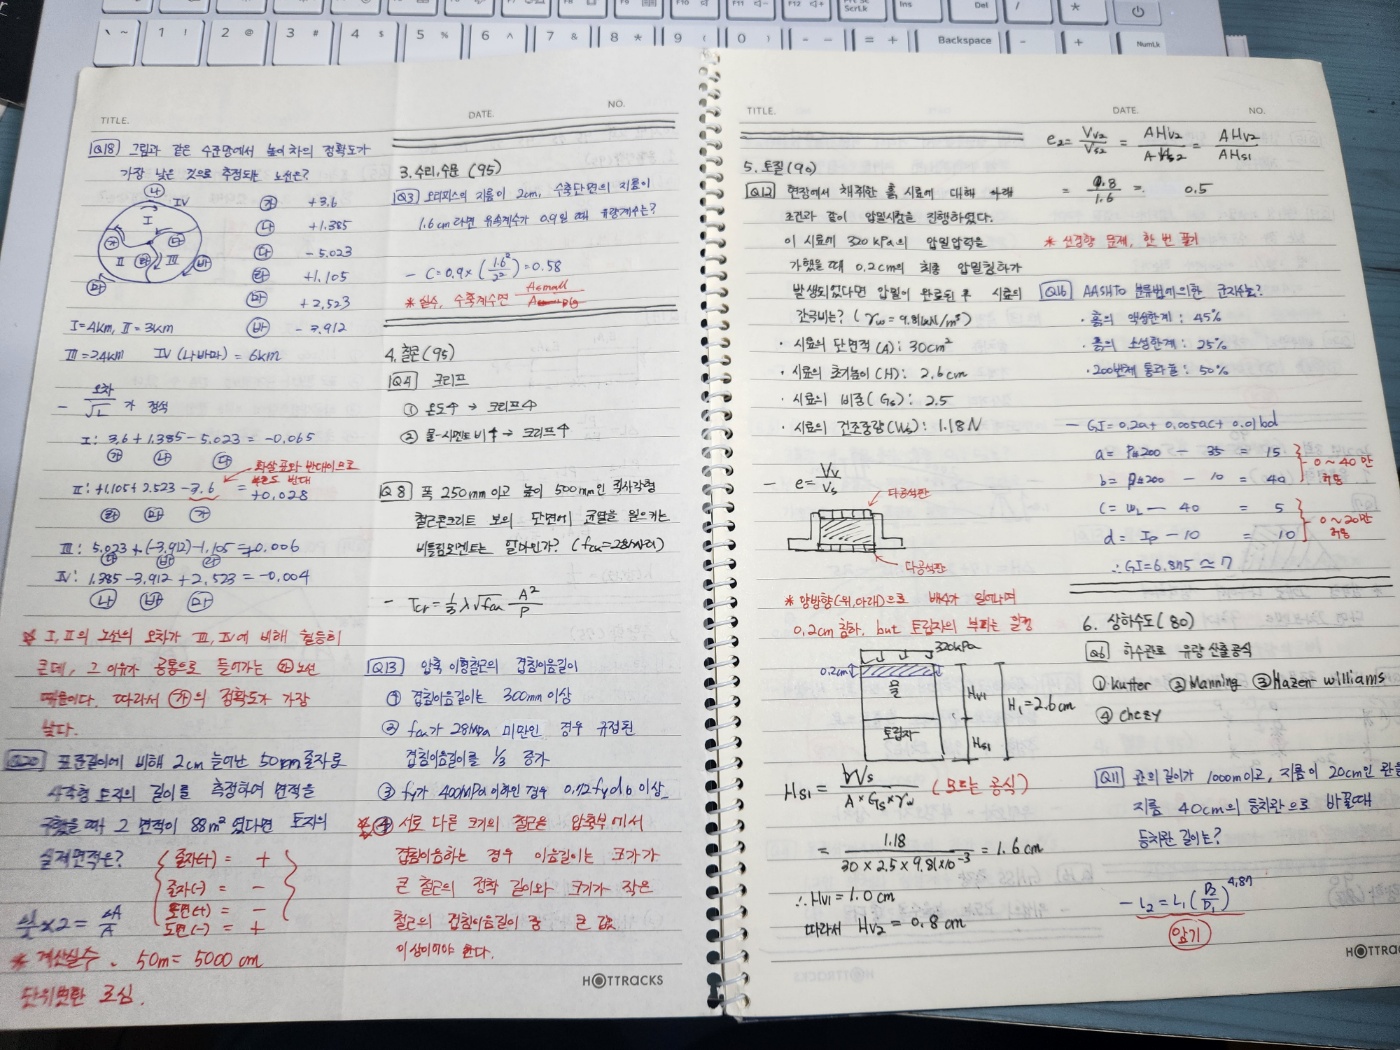 TITLE.
DATE.
NO.
Q18 그림과 같은 수준망에서 높이차의 정확도가
가장 낮은 것으로 추정되는 노선은?
나
IV
I
가
다
II
라
III
마
바
가 +3.6
나 +1.385
다 -5.023
라 +1.105
마 +2.523
바 -3.912
I=4km, II=3km
III=2.4km IV(나바마)=6km
- 오차/√L 가 정석
I: 3.6+1.385-5.023=-0.065
가 나 다
화살표와 반대이므로
부호도 반대
II: +1.105+2.523-3.6=+0.028
라 마 가
III: 5.023+(-3.912)-1.105=+0.006
다 바 라
IV: 1.385-3.912+2.523=-0.004
나 바 마
* I, II의 노선의 오차가 III, IV에 비해 월등히
큰데, 그 이유가 공통으로 들어가는 가 노선
때문이다. 따라서 가의 정확도가 가장
낮다.
Q20 표준길이에 비해 2cm 늘어난 50m 줄자로
사각형 토지의 길이를 측정하여 면적을
구했을 때 그 면적이 88m² 였다면 토지의
실제면적은?
줄자(+) = +
줄자(-) = -
도면(+) = -
도면(-) = +
×2 = ΔA/A
* 계산실수. 50m = 5000cm
단위변환 조심.
3. 수리, 수문 (95)
Q3 오리피스의 지름이 2cm, 수축단면의 지름이
1.6cm라면 유속계수가 0.9일 때 유량계수는?
- C=0.9×(1.6²/2²)=0.58
* 실수, 수축계수면 Asmall
4. 철콘 (95)
Q4 크리프
① 온도↑ → 크리프↑
② 물-시멘트비↑ → 크리프↑
Q8 폭 250mm이고 높이 500mm인 직사각형
철근콘크리트 보의 단면에 균열을 일으키는
비틀림모멘트는 얼마인가? (fcu=28MPa)
- Tcr = 1/3 λ√fcu A²/P
Q13 압축 이형철근의 겹침이음길이
① 겹침이음길이는 300mm 이상
② fcu가 28MPa 미만인 경우 규정된
겹침이음길이를 1/3 증가
③ fy가 400MPa 이하인 경우 0.072fydb 이상
* ④ 서로 다른 크기의 철근은 압축부에서
겹침이음하는 경우 이음길이는 크기가
큰 철근의 정착 길이와 크기가 작은
철근의 겹침이음길이 중 큰 값
이상이어야 한다.
HOTTRACKS
TITLE.
DATE.
NO.
5. 토질 (90)
Q12 현장에서 채취한 흙 시료에 대해 아래
조건과 같이 압밀시험을 진행하였다.
이 시료에 320kPa의 압밀압력을
가했을 때 0.2cm의 최종 압밀침하가
발생되었다면 압밀이 완료된 후 시료의
간극비는? (γw=9.81kN/m³)
· 시료의 단면적(A): 30cm²
· 시료의 초기높이(H): 2.6cm
· 시료의 비중(Gs): 2.5
· 시료의 건조중량(Ws): 1.18N
- e = Vv/Vs
다공석판
다공석판
* 양방향(위,아래)으로 배수가 일어나며
0.2cm 침하. but 토립자의 부피는 일정
320kPa
0.2cm
물
토립자
Hv1
Hs1
H1=2.6cm
Hs1 = Ws/(A×Gs×γw) (모르는 공식)
= 1.18/(30×2.5×9.81×10⁻³) = 1.6cm
∴Hv1=1.0cm
따라서 Hv2=0.8cm
e2 = Vv2/Vs2 = AHv2/AHs2 = AHv2/AHs1
= 0.8/1.6 = 0.5
* 신경향 문제, 한 번 풀기
Q16 AASHTO 분류법에 의한 군지수는?
· 흙의 액성한계: 45%
· 흙의 소성한계: 25%
· 200번체 통과율: 50%
- GI=0.2a+0.005ac+0.01bd
a = P#200 - 35 = 15
b = P#200 - 10 = 40
0~40만
허용
c = wL - 40 = 5
d = Ip - 10 = 10
0~20만
허용
∴GI=6.875≃7
6. 상하수도 (80)
Q6 하수관로 유량 산출공식
① Kutter ② Manning ③ Hazen williams
④ chezy
Q11 관의 길이가 1000m이고, 지름이 20cm인 관을
지름 40cm의 등치관으로 바꿀때
등치관 길이는?
- L2=L1(D2/D1)^4.87
암기
HOTTRACKS